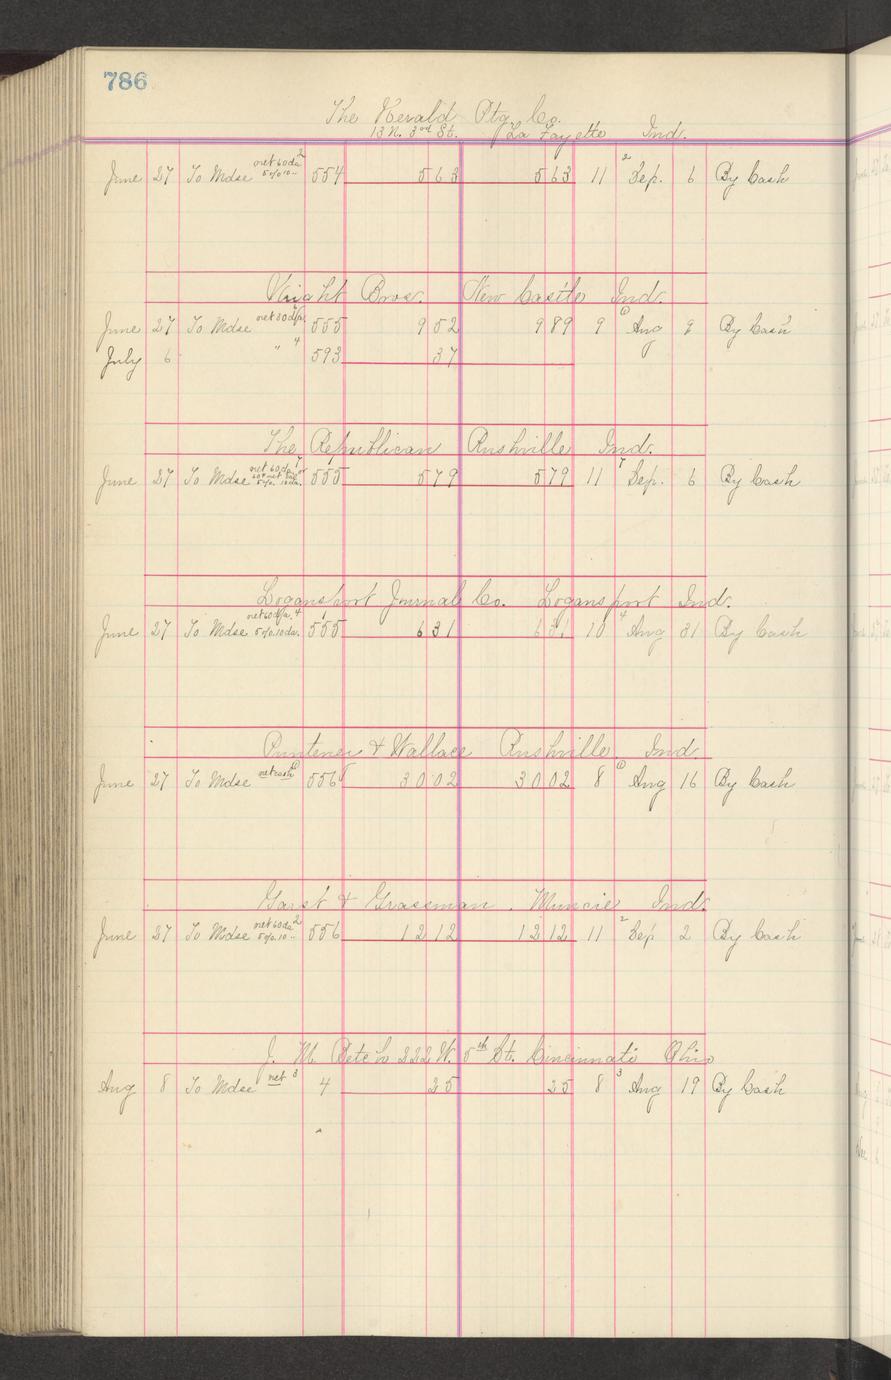 786
The Herald Ptg. Co.
13 N. 3rd St. La Fayette Ind.
June 27 To Mdse net 60 da 2 5% 10 " 554 563 563 11 2 Sep. 6 By Cash
Knight Bros. New Castle Ind.
June 27 To Mdse net 30 d/s. 555 952 989 9 1 Aug 9 By Cash
July 6 " 4 593 37
The Republican Rushville Ind.
June 27 To Mdse net 60 da. 7 or 5% 10 da. 555 579 579 11 7 Sep. 6 By Cash
Logansport Journal Co. Logansport Ind.
June 27 To Mdse net 60 d/a. 4 5% 10 da. 555 631 631 10 4 Aug 31 By Cash
& Wallace Rushville Ind.
June 27 To Mdse net cash 1 556 3002 3002 8 1 Aug 16 By Cash
Garst & Grassman. Muncie Ind.
June 27 To Mdse net 60 da 2 5% 10 " 556 1212 1212 11 2 Sep 2 By Cash
J. M. 222 W. 5th St. Cincinnati Ohio
Aug 8 To Mdse net 3 4 25 25 8 3 Aug 19 By Cash